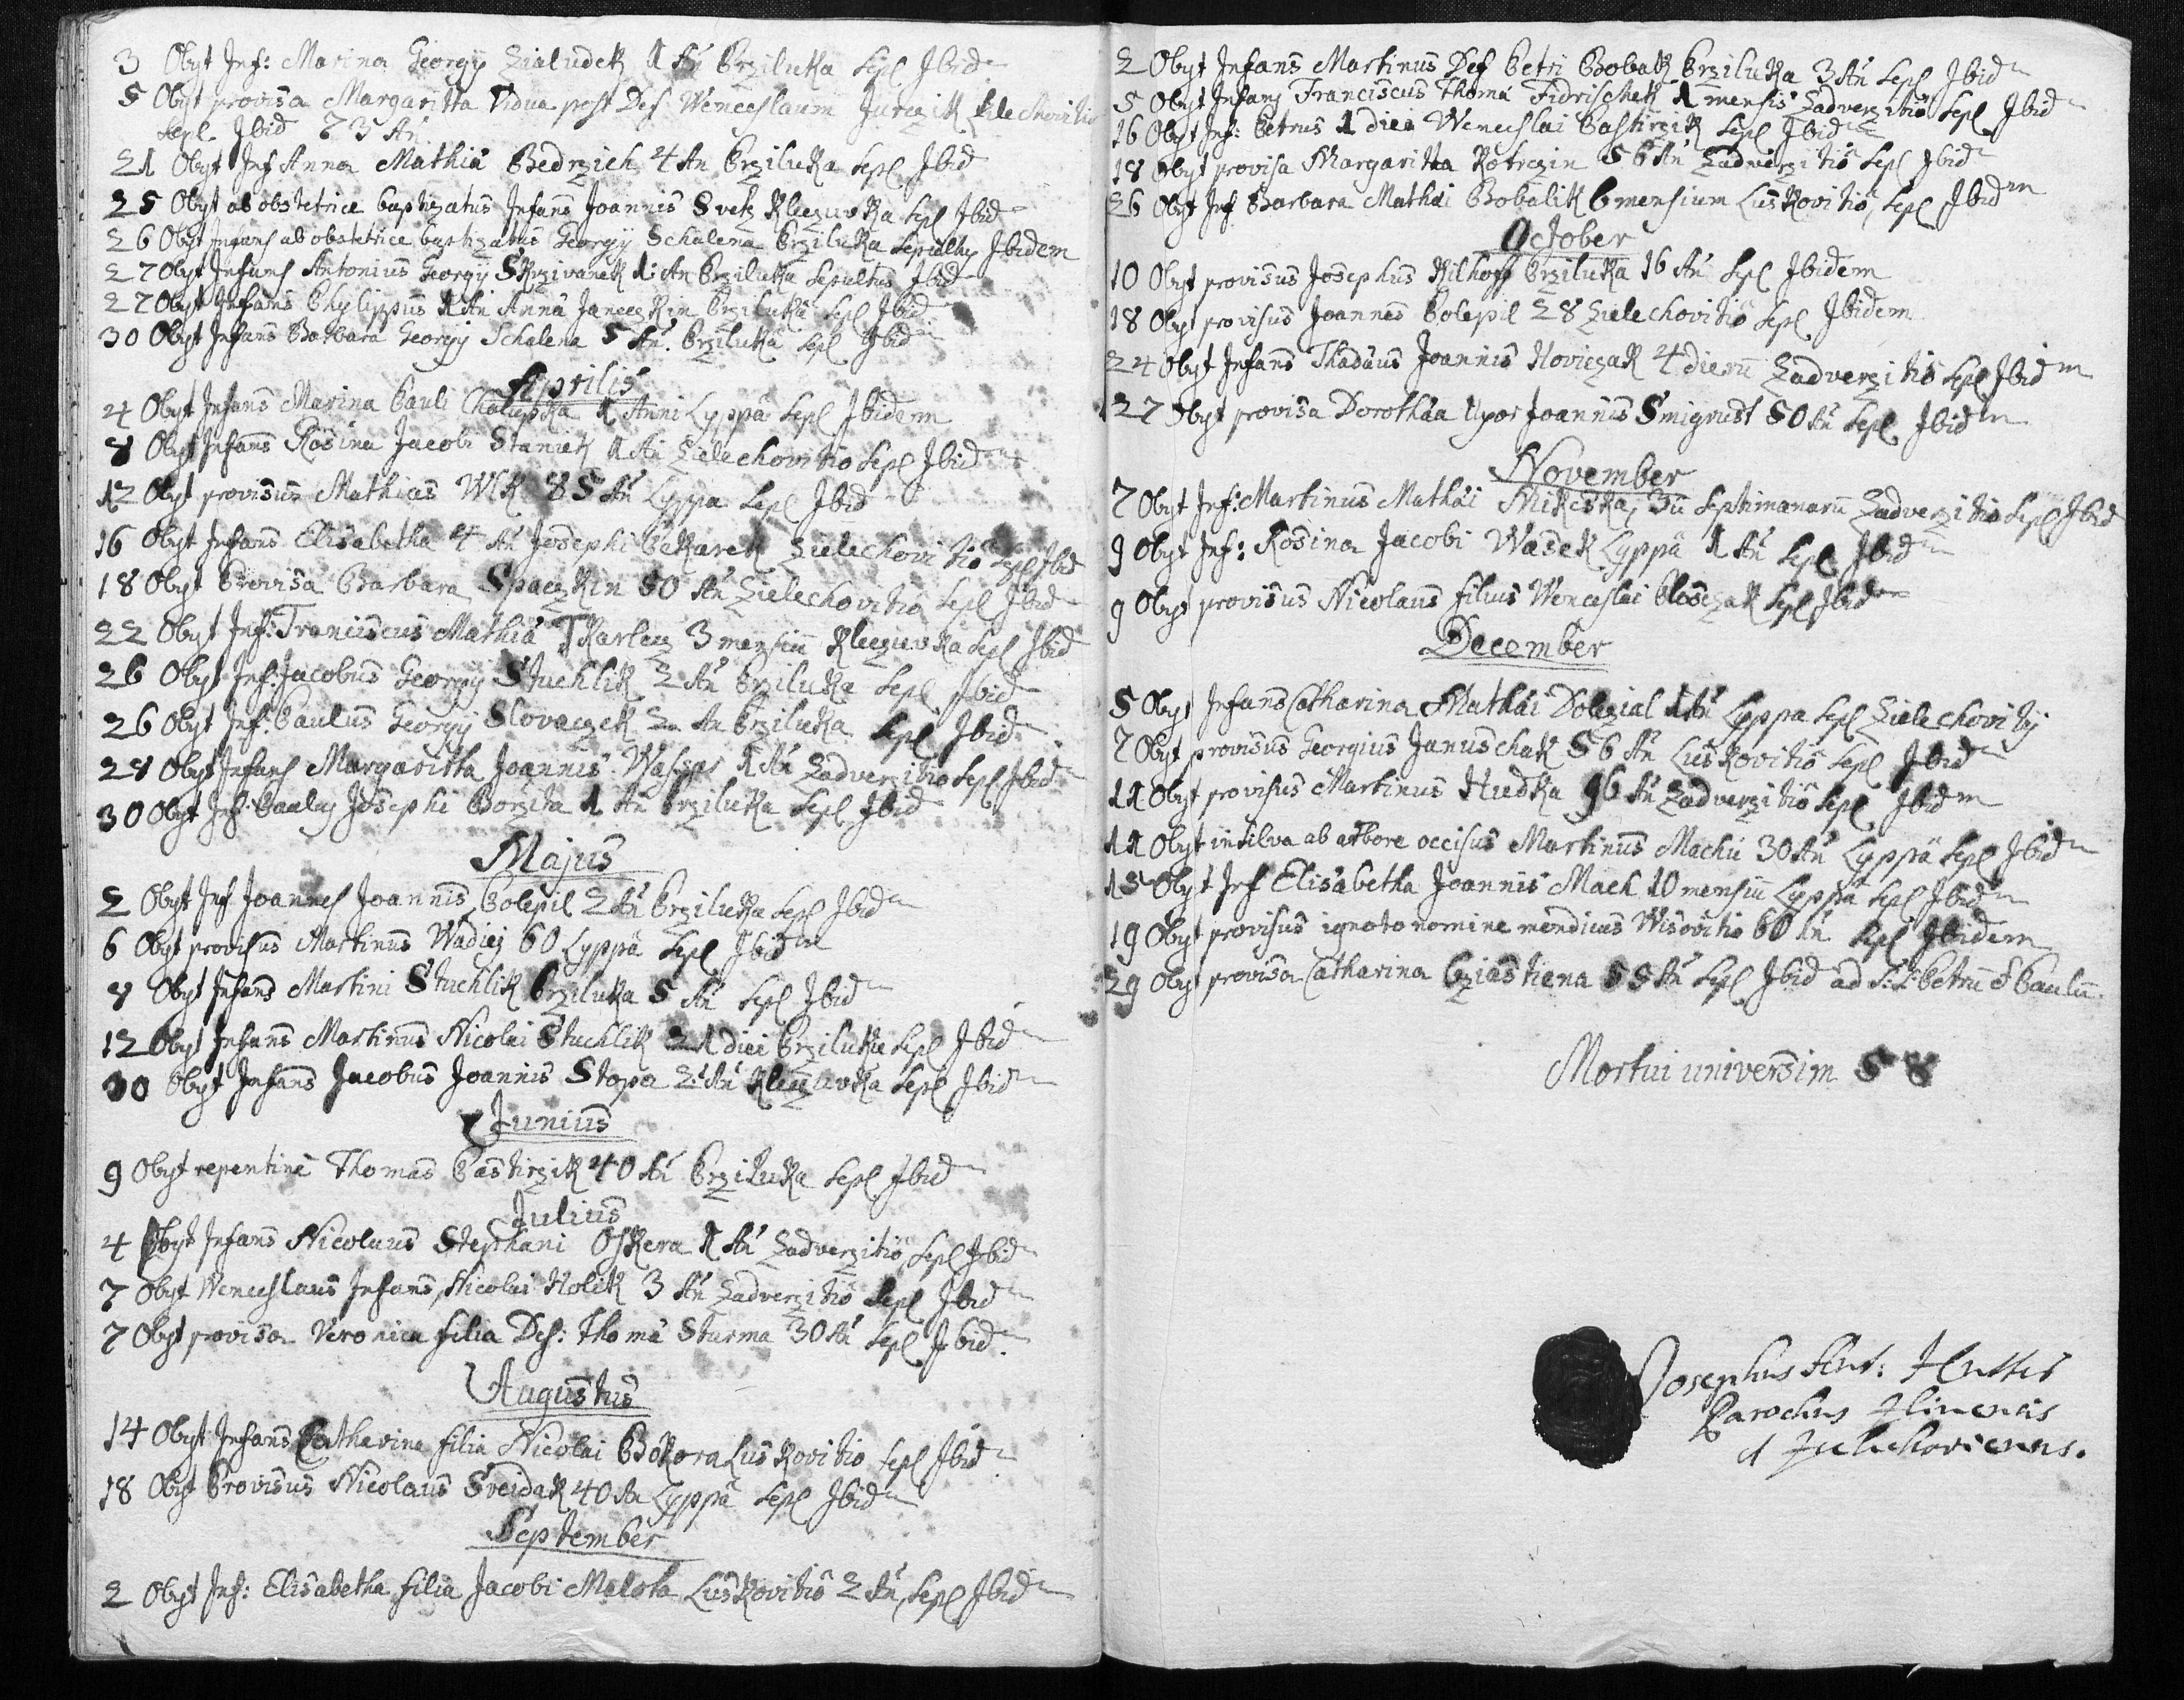 3 Obyt Inf: Marina Georgÿ Zialudek 1 An Prziluka Sepl Ibid
5 Obyt provisa Margaritta Vidua post Def: Wenceslaum Jurczik Zilechovitio
Sepl Ibid 73 An
21 Obyt Inf Anna Mathiä Bedrzich 4 An Prziluka Sepl Ibid
25 Obyt ab obstetrice baptizatus Infans Joannis Svetz Kleczuvka Sepl Ibid
26 Obyt Infans ab obstetrice baptizatus Georgÿ Schalena Prziluka Sepultus Ibidem
27 Obyt Infans Antonius Georgÿ Skrzivanek 1: An Prziluka Sepultus Ibid
27 Obyt Infans Phylippus 1 An Anna Janeczkin Przilukä Sepl Ibid
30 Obyt Infans Barbara Georgÿ Schalena 5 An. Przilukä Sepl Ibid
Aprilis
4 Obyt Infans Marina Pauli Chalupska 1 Anni Lyppä Sepl Ibidem
8 Obyt Infans Rosina Jacobi Staniek 1 An Zielechovitio Sepl Ibid
12 Obyt provisus Mathias Wlk 85 An Lyppa Sepl Ibid
16 Obyt Infans Elisabetha 4 An Josephi Pekarek Zielechovitio Sepl Ibid
18 Obyt Provisa Barbara Spaczkin 50 An Zielechovitio Sepl Ibid
22 Obyt Inf: Franciscus Mathiä Tkarlecz 3 mensiu Kleczuvka Sepl Ibid
26 Obyt Inf: Jacobus Georgÿ Stuchlik 2 An Prziluka Sepl Ibid
26 Obyt Inf: Paulus Georgÿ Slovaczek 2 An Prziluka Sepl Ibid
28 Obyt Infans Margaritta Joannis 1 An Zadverzitio Sepl Ibid
30 Obyt Inf: Paulus Josephi Borzita 1 An Przilutka Sepl Ibid
Majus
2 Obyt Inf Joannes Joannis Polepil 2 An Przilutka Sepl Ibid
6 Obyt provisus Martinus Wadiej 60 Lyppä Sepl Ibid
8 Obyt Infans Martini Stuchlik Przilutka 5 An Sepl Ibid
12 Obyt Infans Martinus Nicolai Stuchlik 21 diei Przilutka Sepl Ibid
30 Obyt Infans Jacobus Joannis Stopa 2: An Kleczuvka Sepl Ibid
Junius
9 Obyt repentine Thomas Pastirzik 40 An Przilutka Sepl Ibid
Julius
4 Obyt Infans Nicolaus Stephani Oskera 1 An Zadverzitio Sepl Ibid
7 Obyt Wenceslaus Infans, Nicolai Holik 3 An Zadverzitio Sepl Ibid
7 Obyt provisa Veronica filia Def: Thomä Sturma 30 An Sepl Ibid.
Augustus
14 Obyt Infans Catharina filia Nicolai Bokora Luskovitio Sepl Ibid
18 Obyt Provisus Nicolaus Sveidak 40 An Lyppä Sepl Ibid
September
2 Obyt Inf: Elisabetha filia Jacobi Malota Luskovitio 2 An, Sepl Ibid
2 Obyt Infans Martinus Def Petri Bobak Przilutka 3 An Sepl Ibid
5 Obyt Infans Franciscus Thomä Fidrischek 1 mensis Zadverzitio Sepl Ibid
16 Obyt Inf: Petrus 1 diei Wenceslai Pastirzik Sepl Ibid
18 Obyt provisa Margaritta Kotrczin 56 An Zadverzitio Sepl Ibid
26 Obyt Inf Barbara Mathäi Bobalik 6 mensium Luskovitio, Sepl Ibid
October
10 Obyt provisus Josephus Kilhoff Przilutka 16 An Sepl Ibidem
18 Obyt provisus Joannes Polepil 28 Zielechovitio Sepl Ibidem
24 Obyt Infans Thadäus Joannis Noviczak 4 dieru Zadverzitio Sepl Ibid
27 Obyt provisa Dorothäa Uxor Joannis Smigrust 50 An Sepl Ibid
November
7 Obyt Inf: Martinus Mathäi Mikeska 3u Septimanaru Zadverzitio Sepl Ibid
9 Obyt Inf: Rosina Jacobi Wasek Lyppä 1 An Sepl Ibid
9 Obyt provisus Nicolaus filius Wenceslai Sepl Ibid
December
5 Obyt Infans Catharina Mathäi Dolezial 1 An Lyppa Sepl Zielechovitÿ
7 Obyt provisus Georgius Januschak 56 An Luskovitio Sepl Ibid
11 Obyt provisus Martinus Hudka 96 An Zadverzitio Sepl Ibid
11 Obyt in silva ab arbore occisus Martinus Machu 30 An Lyppä Sepl Ibid
15 Obyt Inf Elisabetha Joannis Mach 10 mensiu Lyppä Sepl Ibid
19 Obyt provisus ignoto nomine mendicus Wisovitio 60 An Sepl Ibidem
29 Obyt provisa Catharina Cziastiena 58 An Sepl Ibid ad S: S: Petru & Paulu.
Mortui universim 58
Josephus Ant:
Parochus Zlinensis